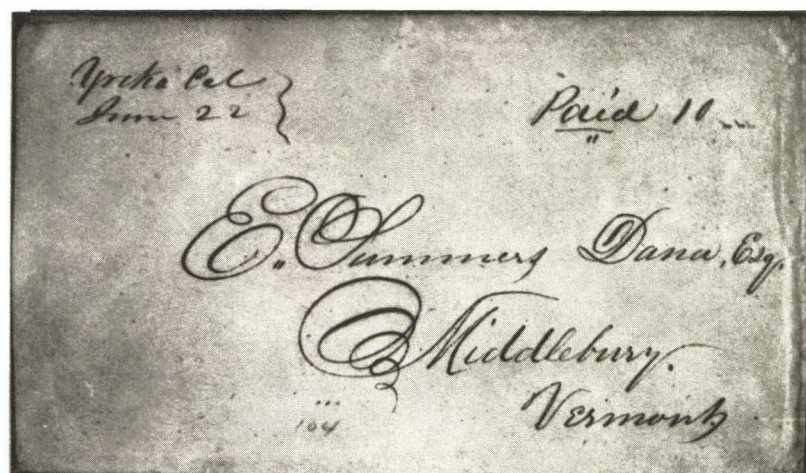 Yreka Cal
June 22
Paid 10
E. Summers Dana, Esq.
Middlebury.
Vermont
104